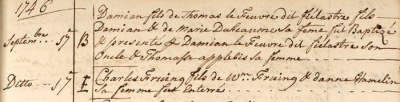 1746
Damian fils de Thomas le Feuvre dit filastre fils
Damian & de Marie Duteaume Sa feme fut Baptizé
Septembre 5e B & presenté par Damian le Feuvre dit filastre Son
Oncle & Thomasse applebis Sa femme
Ditto 5e E Charles Frouing fils de Wm. Frouing & d'anne Hamelin
Sa femme fut Enterré